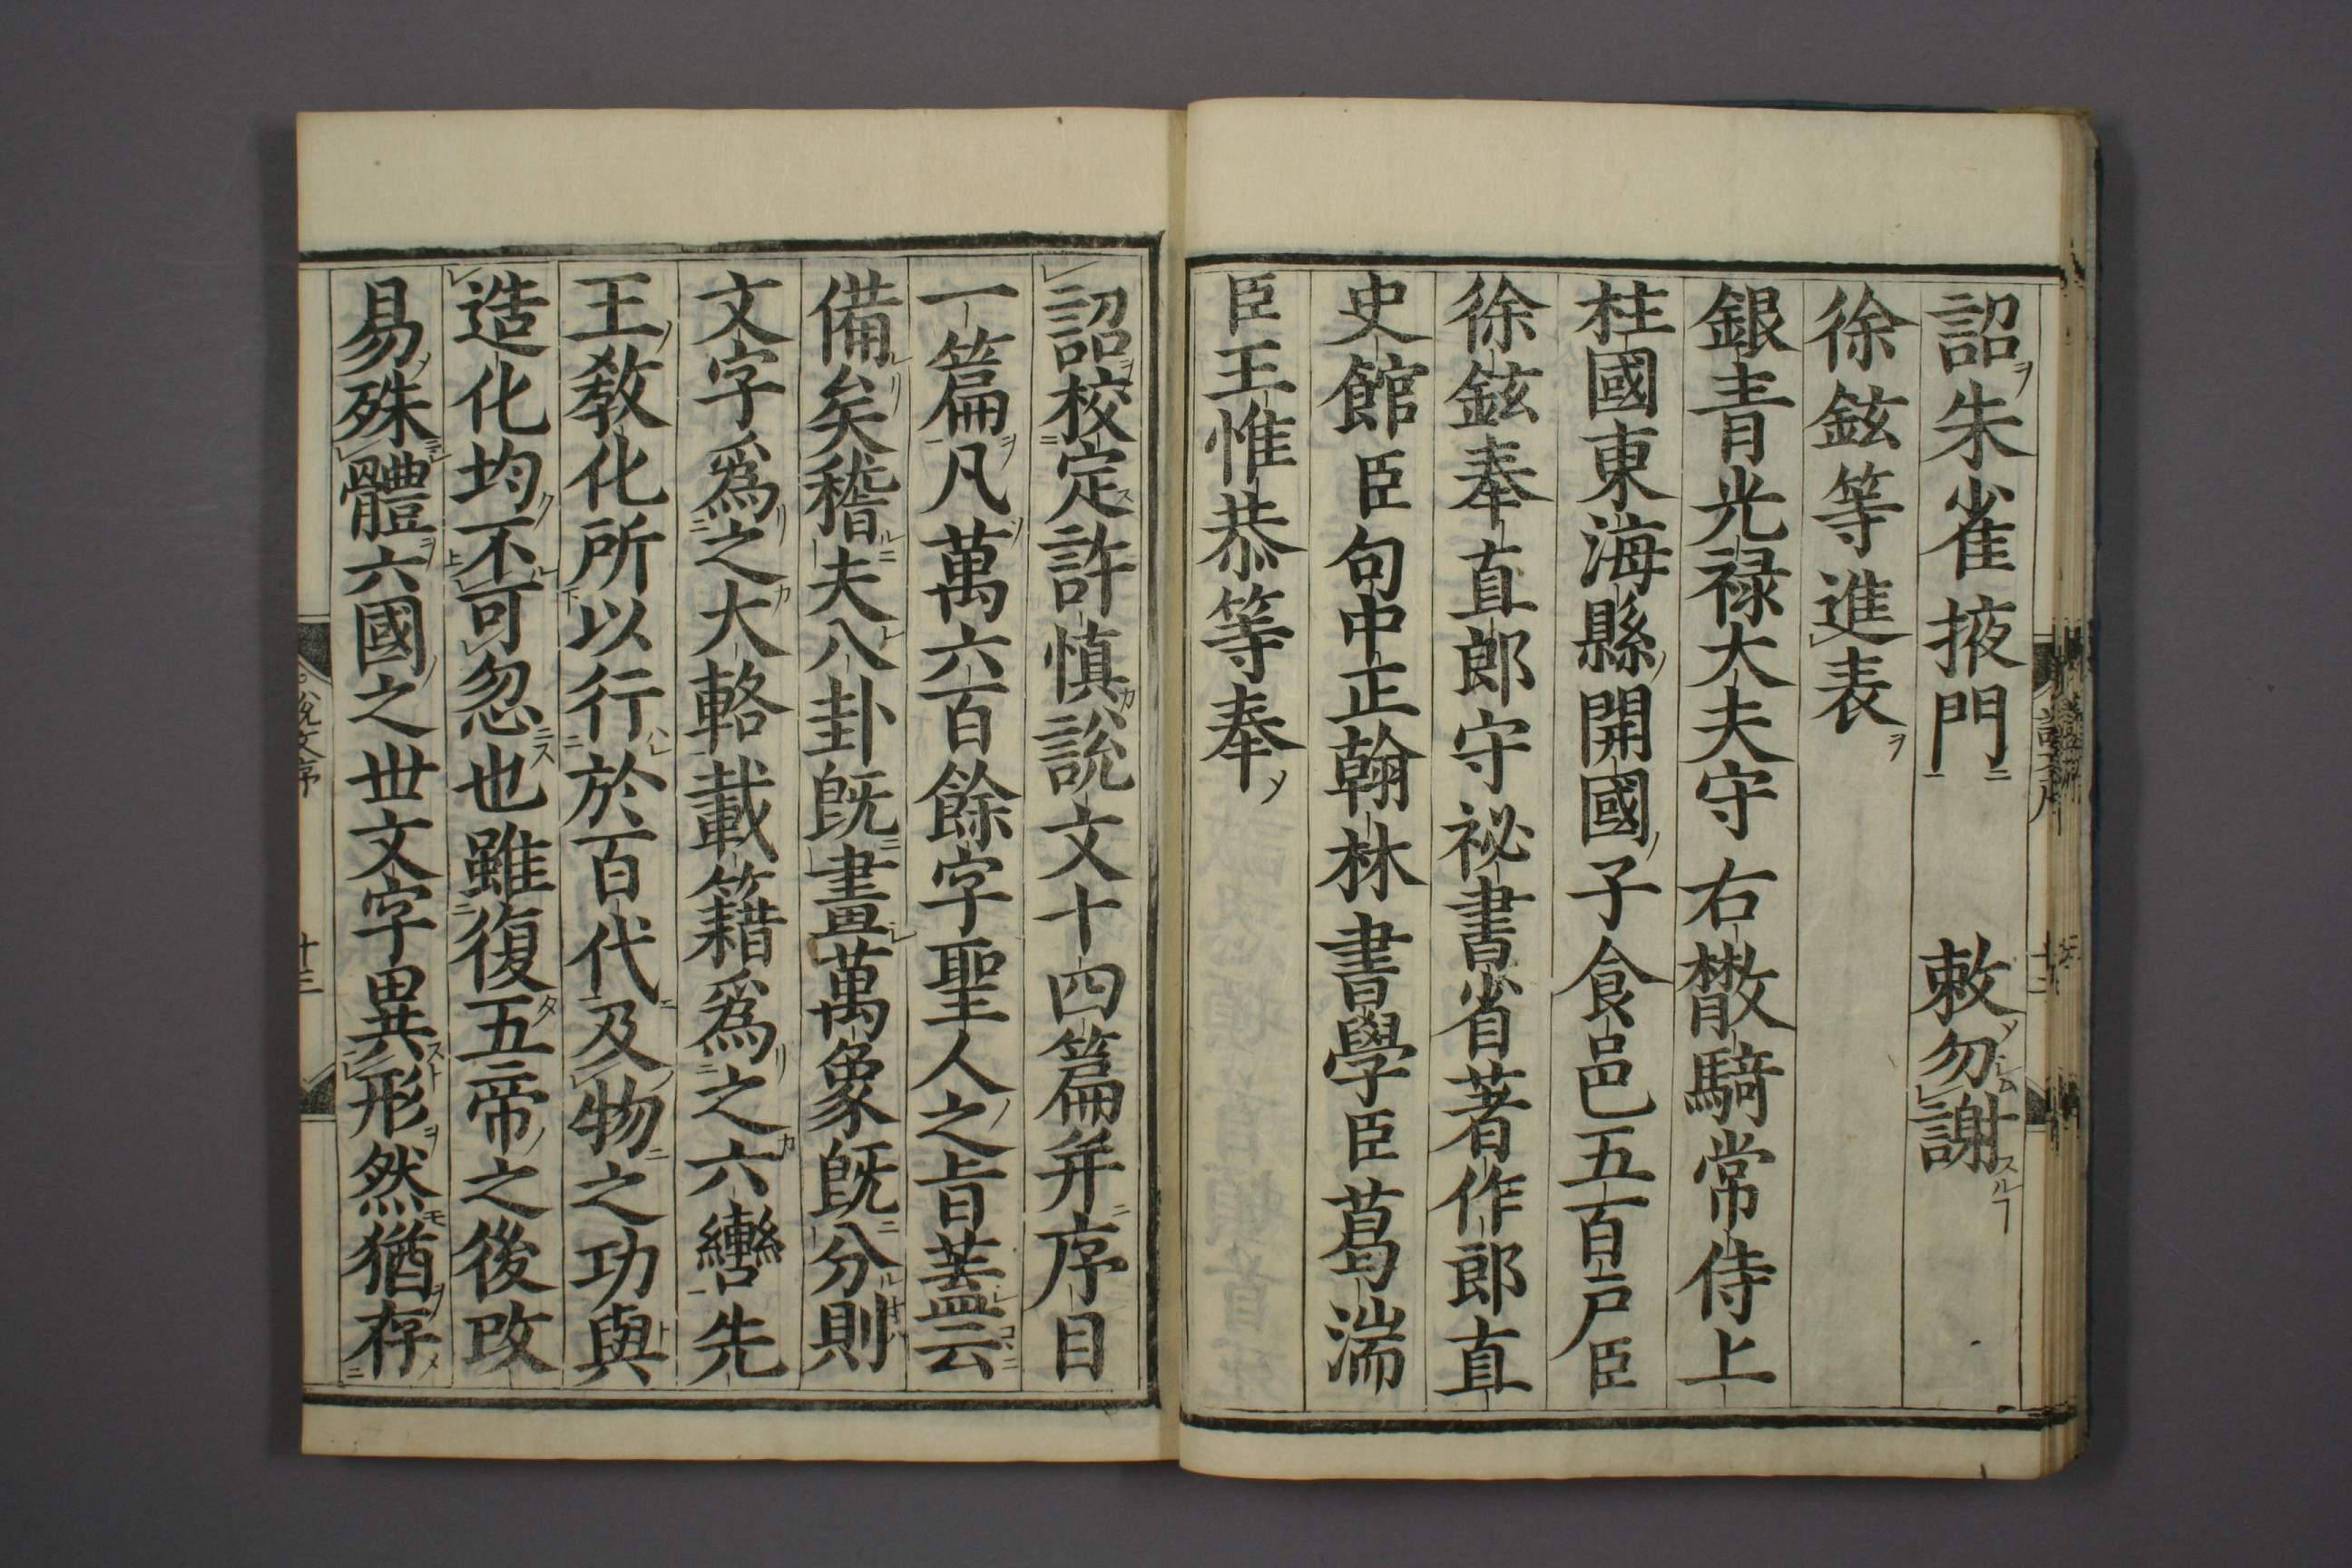 詔朱雀掖門　　敕勿謝
徐鉉等進表
銀青光禄大夫守右散騎常侍上
柱國東海縣開國子食邑五百戸臣
徐鉉奉直郎守祕書省著作郎直
史館臣句中正翰林書學臣葛湍
臣王惟恭等奉
詔校定許慎說文十四篇并序目
一篇凡萬六百餘字聖人之旨蓋云
備矣稽夫八卦既畫萬象既分則
文字爲之大輅載籍爲之六轡先
王敎化所以行於百代及物之功與
造化均不可忽也雖復五帝之後改
易殊體六國之世文字異形然猶存
說文序
十三